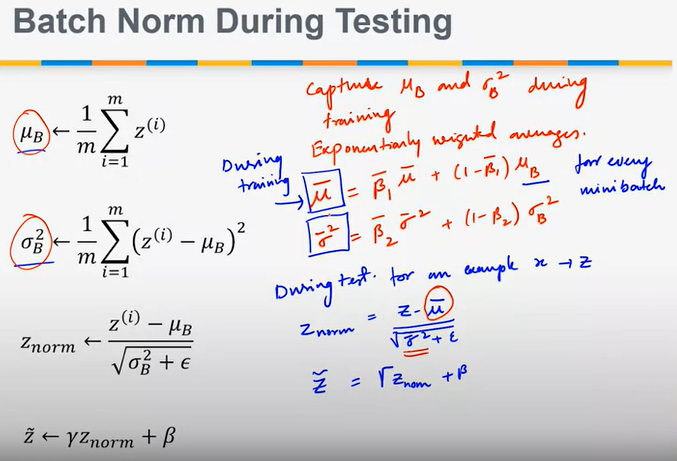 Batch Norm During Testing
μ_B ← 1/m ∑_{i=1}^{m} z^{(i)}
σ_B^2 ← 1/m ∑_{i=1}^{m} (z^{(i)} − μ_B)^2
z_{norm} ← (z^{(i)} − μ_B) / √(σ_B^2 + ϵ)
z̃ ← γz_{norm} + β
Capture μ_B and σ_B^2 during
training
Exponentially weighted averages.
During
training
μ̄ = β̄_1 μ̄ + (1-β̄_1) μ_B
for every
minibatch
σ̄^2 = β̄_2 σ̄^2 + (1-β_2) σ_B^2
During test. for an example x → z
z_{norm} = (z - μ̄) / √(σ̄^2 + ε)
z̃ = Γ z_{norm} + β